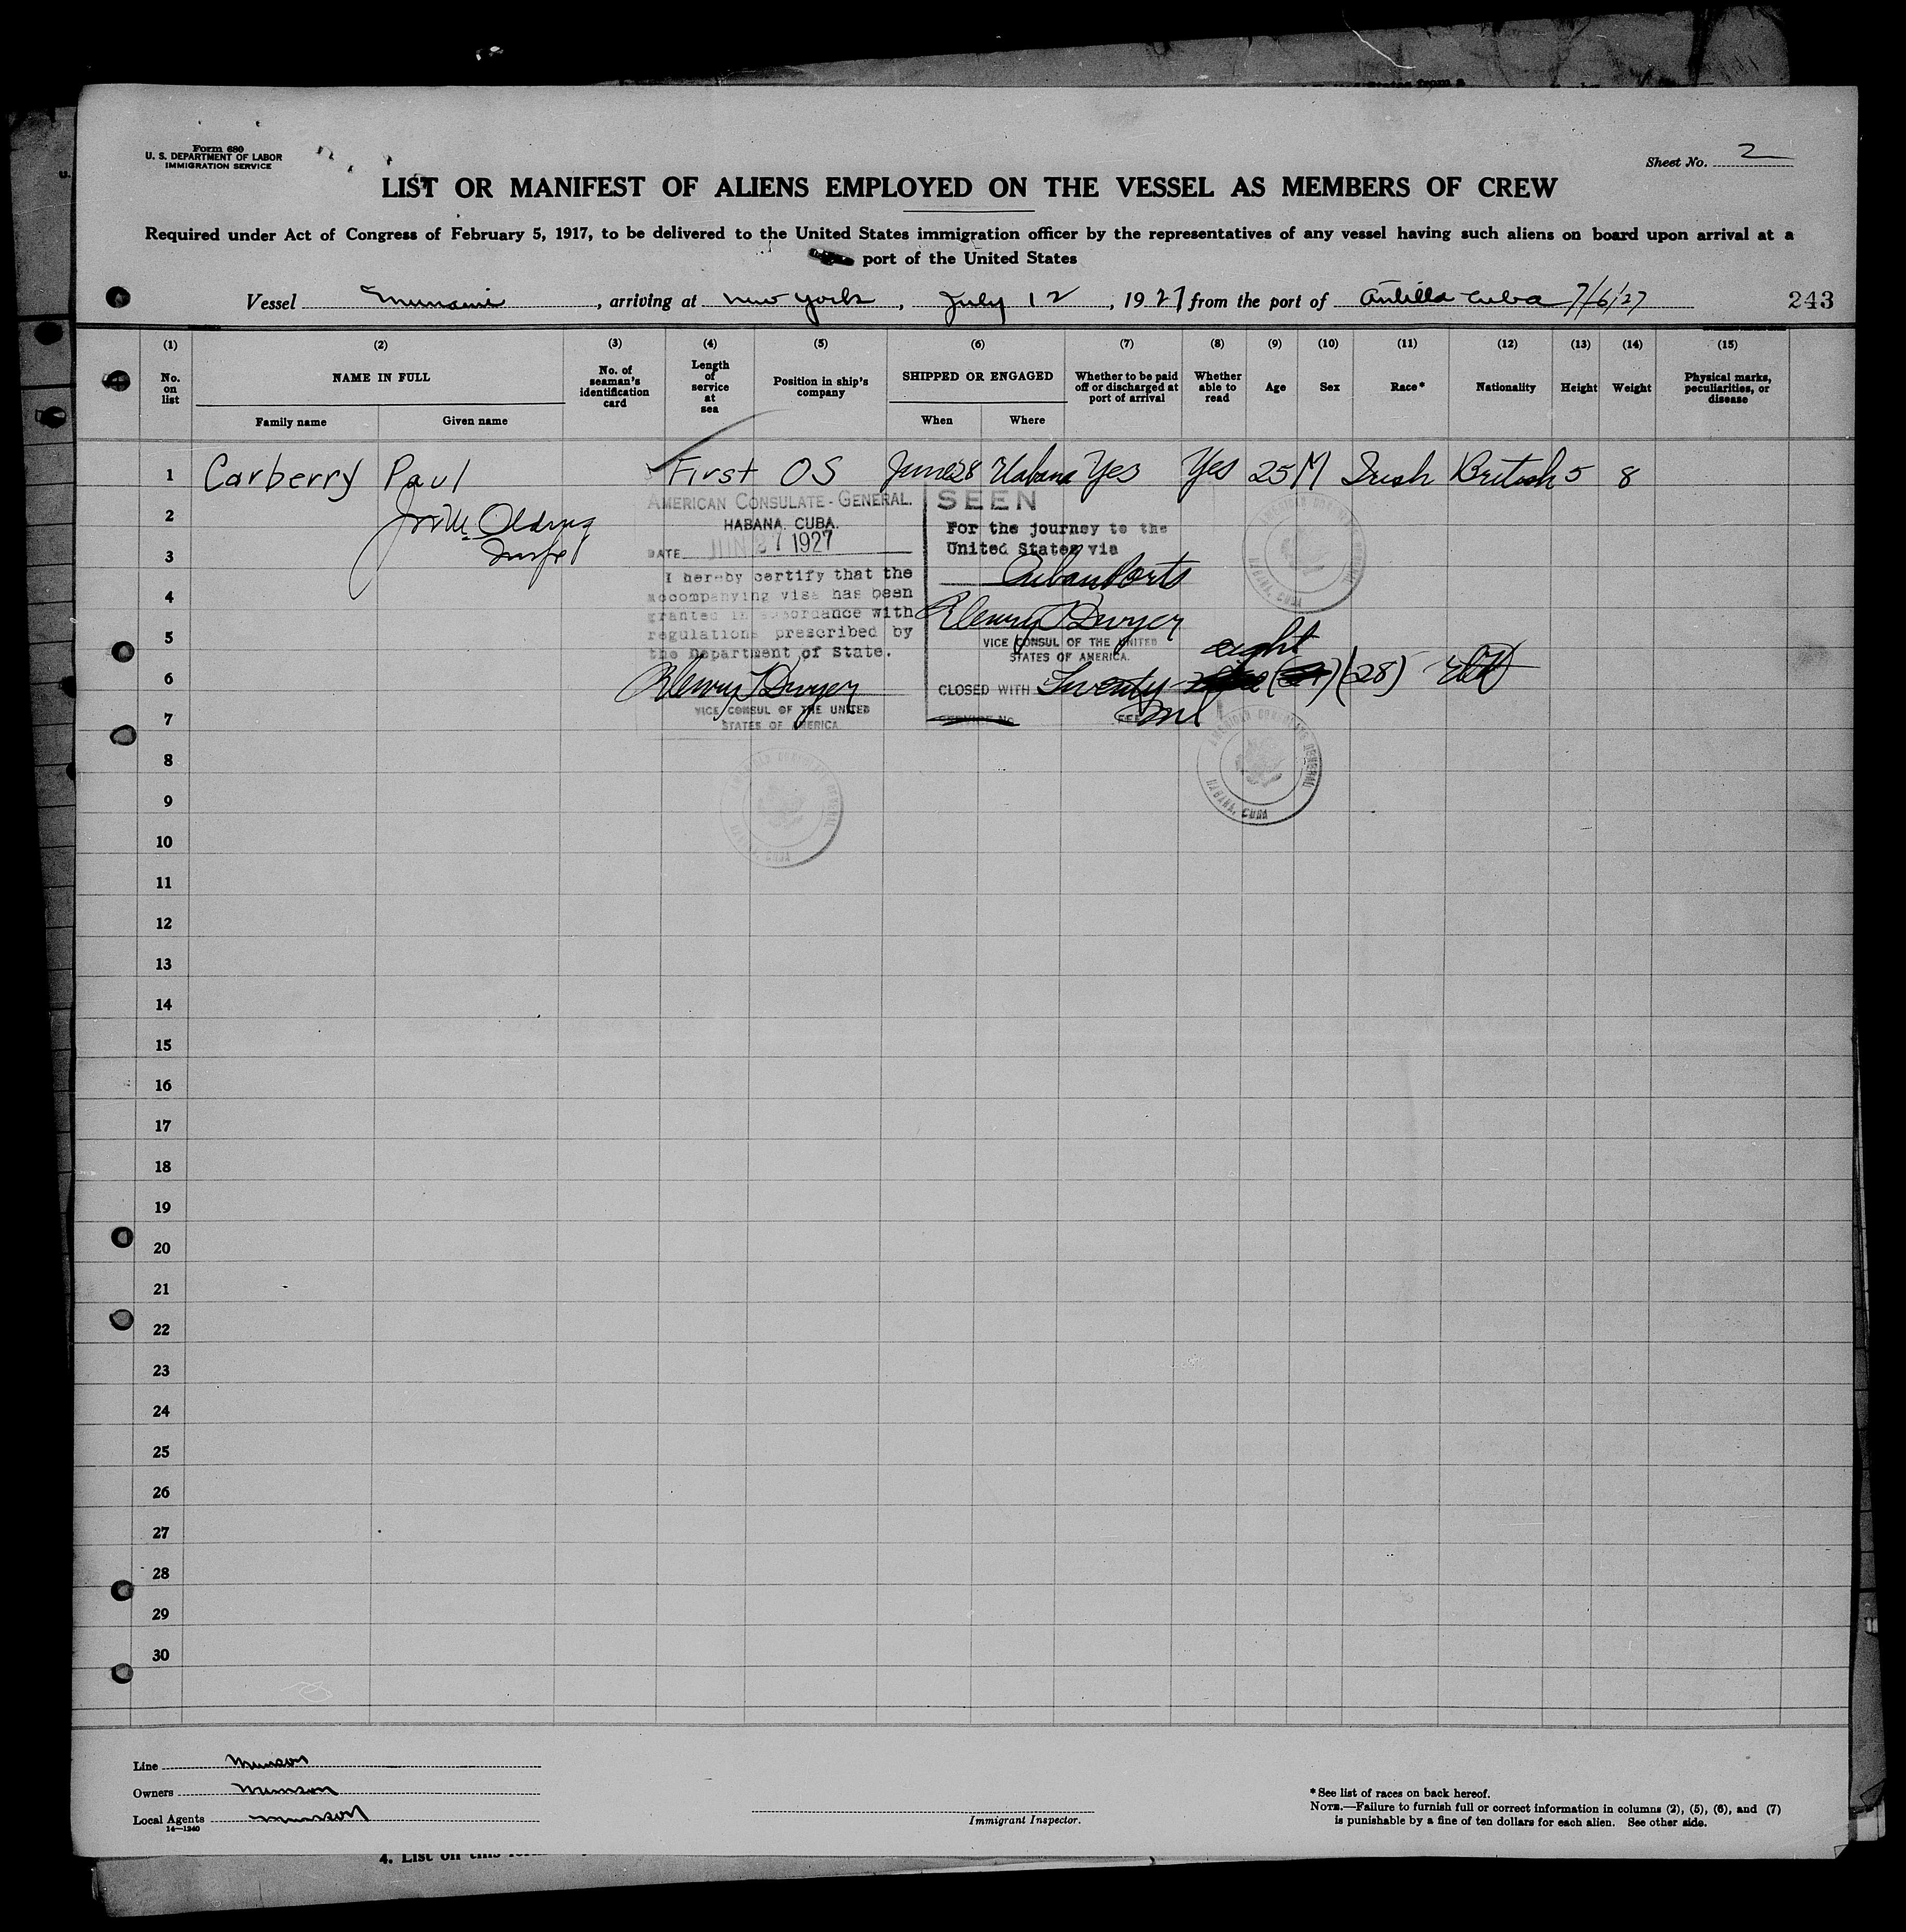 Form 680
U. S. DEPARTMENT OF LABOR
IMMIGRATION SERVICE
Sheet No. 2
LIST OR MANIFEST OF ALIENS EMPLOYED ON THE VESSEL AS MEMBERS OF CREW
Required under Act of Congress of February 5, 1917, to be delivered to the United States immigration officer by the representatives of any vessel having such aliens on board upon arrival at a
port of the United States
Vessel , arriving at New York , July 12 , 1927 from the port of Antilla Cuba 7/6/27
243
(1) (2) (3) (4) (5) (6) (7) (8) (9) (10) (11) (12) (13) (14) (15)
No. on list
NAME IN FULL
Family name Given name
No. of seaman's identification card
Length of service at sea
Position in ship's company
SHIPPED OR ENGAGED
When Where
Whether to be paid off or discharged at port of arrival
Whether able to read
Age
Sex
Race*
Nationality
Height
Weight
Physical marks, peculiarities, or disease
1 Carberry Paul First OS June 28 Habana Yes Yes 25 M Irish British 5 8
2
3
4
5
6
7
8
9
10
11
12
13
14
15
16
17
18
19
20
21
22
23
24
25
26
27
28
29
30
AMERICAN CONSULATE-GENERAL.
HABANA. CUBA.
DATE JUN 27 1927
I hereby certify that the
accompanying visa has been
granted in accordance with
regulations prescribed by
the Department of State.
Henry Dwyer
VICE CONSUL OF THE UNITED
STATES OF AMERICA
SEEN
For the journey to the
United States via
Cuban Ports
Henry Dwyer
VICE CONSUL OF THE UNITED
STATES OF AMERICA.
eight
CLOSED WITH Twenty (28)
SERVICE No. FEE
AMERICAN CONSULATE GENERAL
HABANA, CUBA
AMERICAN CONSULATE GENERAL
HABANA, CUBA
AMERICAN CONSULATE GENERAL
HABANA, CUBA
Line Munson
Owners Munson
Local Agents Munson
14—1240
Immigrant Inspector.
*See list of races on back hereof.
NOTE.—Failure to furnish full or correct information in columns (2), (5), (6), and (7)
is punishable by a fine of ten dollars for each alien. See other side.
4. List on this form